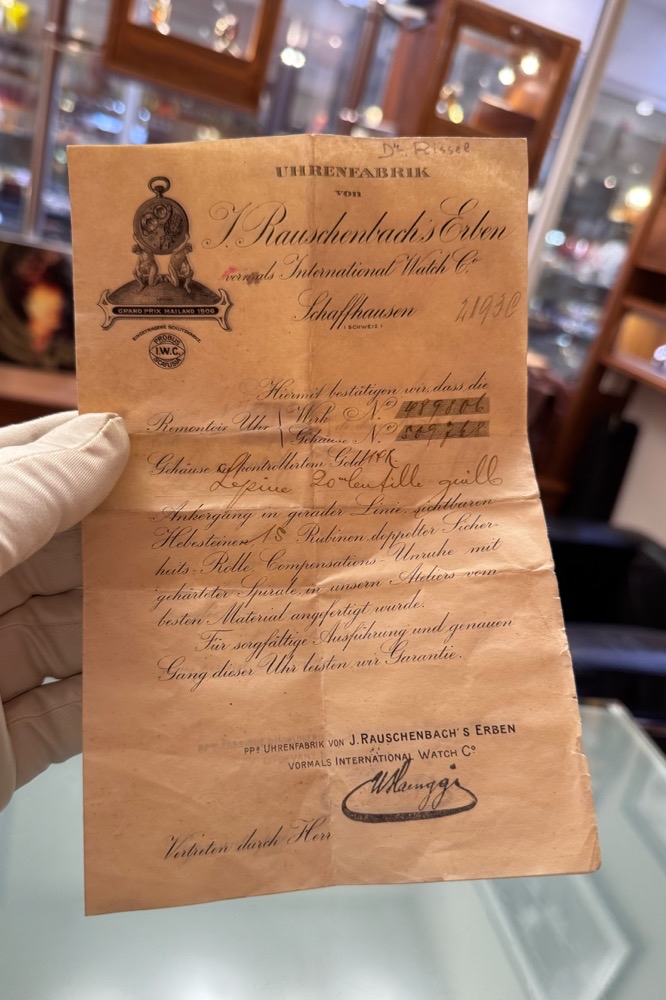 Dr. Rissel
UHRENFABRIK
von
J. Rauschenbach's Erben
vormals International Watch Co.
Schaffhausen
(SCHWEIZ)
2193C
GRAND PRIX MAILAND 1906
EINGETRAGENE SCHUTZMARKE
PROBUS
I.W.C.
SCAFUSIA
Hiermit bestätigen wir, dass die
Remontoir Uhr Werk No. 489806
Gehäuse No. 509768
Gehäuse off. kontrolliertem Gold 14K
Lepine 20 guill
Ankergang in gerader Linie, sichtbaren
Hebesteinen 15 Rubinen, doppelter Sicher-
heits-Rolle Compensations-Unruhe mit
gehärteter Spirale, in unsern Ateliers vom
besten Material angefertigt wurde.
Für sorgfältige Ausführung und genauen
Gang dieser Uhr leisten wir Garantie.
PPA UHRENFABRIK VON J. RAUSCHENBACH'S ERBEN
VORMALS INTERNATIONAL WATCH Co
Vertreten durch Herr